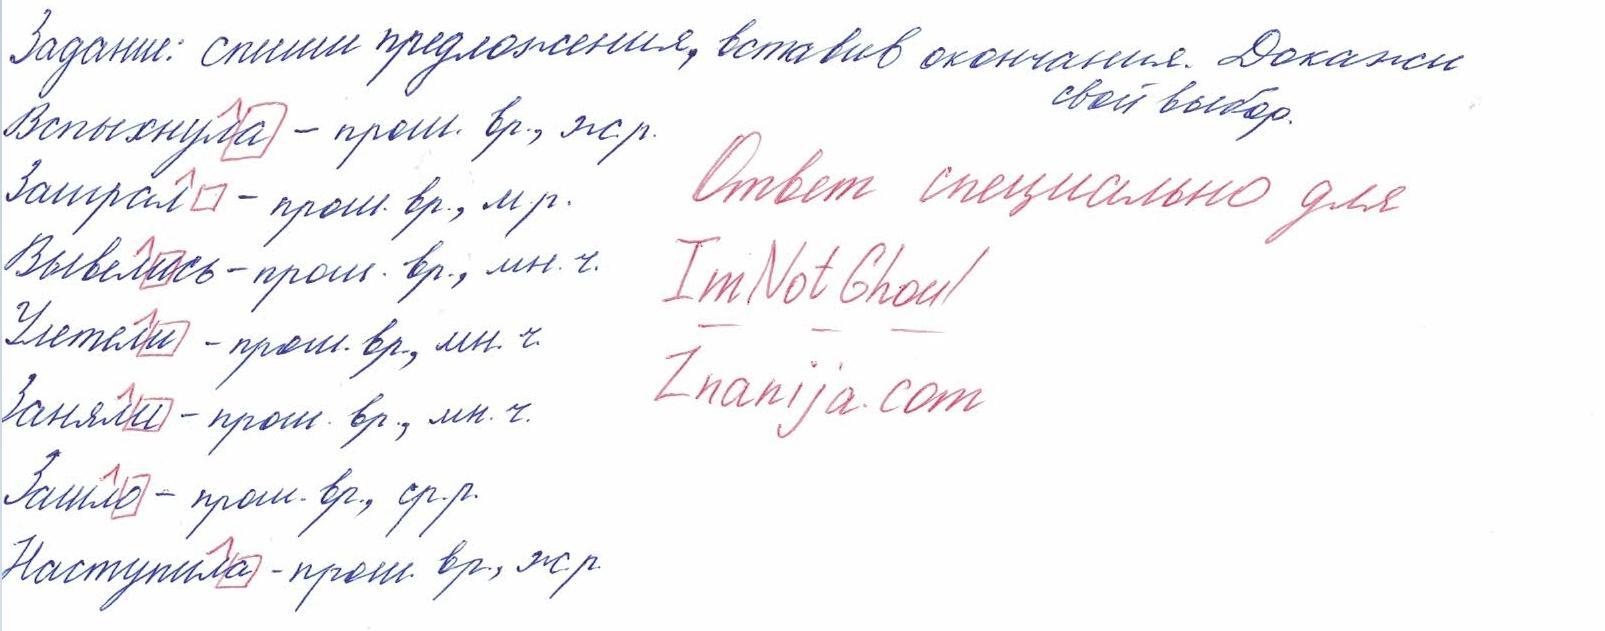 Задание: спиши предложения, вставив окончания. Докажи
свой выбор.
Вспыхнула – прош. вр., ж.р.
Заиграл – прош. вр., м.р.
Вывелись – прош. вр., мн. ч.
Улетели – прош. вр., мн. ч.
Заняли – прош. вр., мн. ч.
Зашло – прош. вр., ср.р.
Наступила – прош. вр., ж.р.
Ответ специально для
ImNotGhoul
Znanija.com